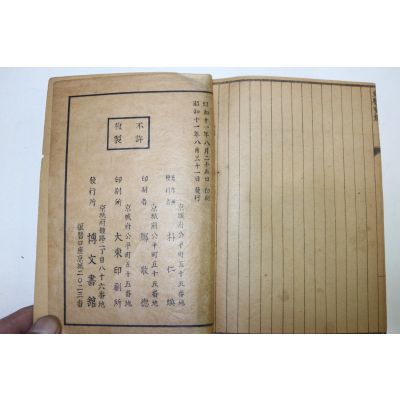 昭和十一年八月二十五日 印刷
昭和十一年八月三十一日 發行
不許
複製
京城府公平町五十五番地
發行者 朴仁煥
京城府公平町五十五番地
印刷者 鄭敬德
京城府公平町五十五番地
印刷所 大東印刷所
京城府鍾路二丁目八十六番地
發行所 博文書館
振替口座京城二〇二三番